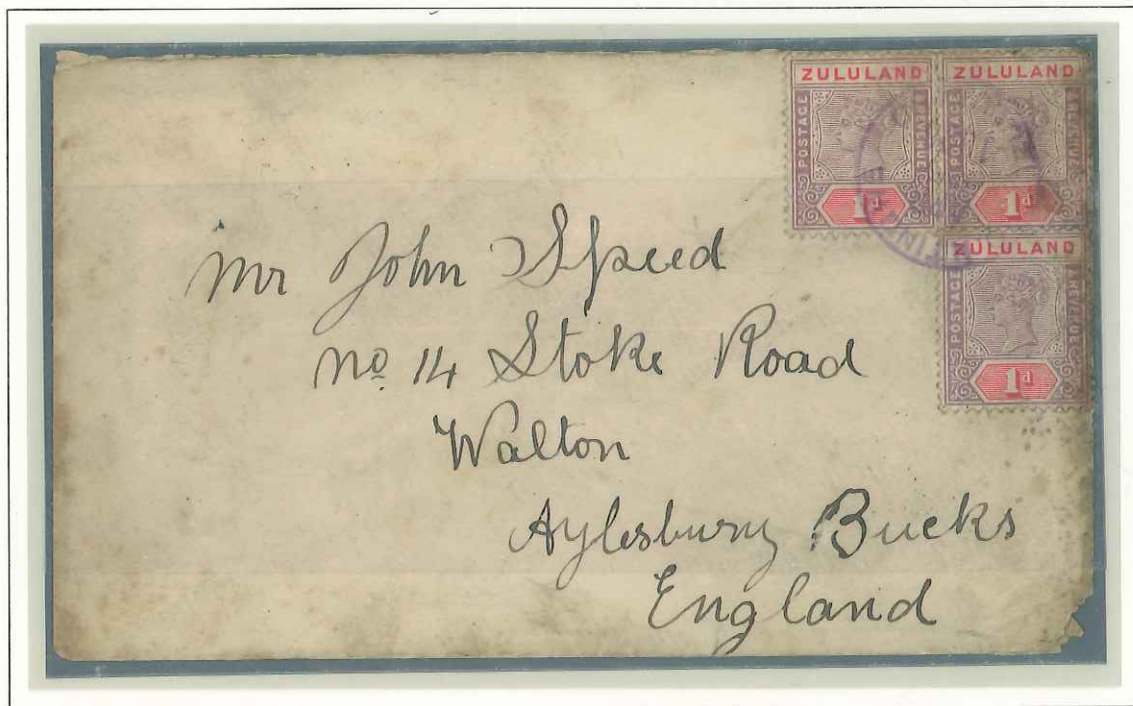 ZULULAND
POSTAGE & REVENUE
1d
ZULULAND
POSTAGE & REVENUE
1d
ZULULAND
POSTAGE & REVENUE
1d
Mr John Speed
No 14 Stoke Road
Walton
Aylesbury Bucks
England